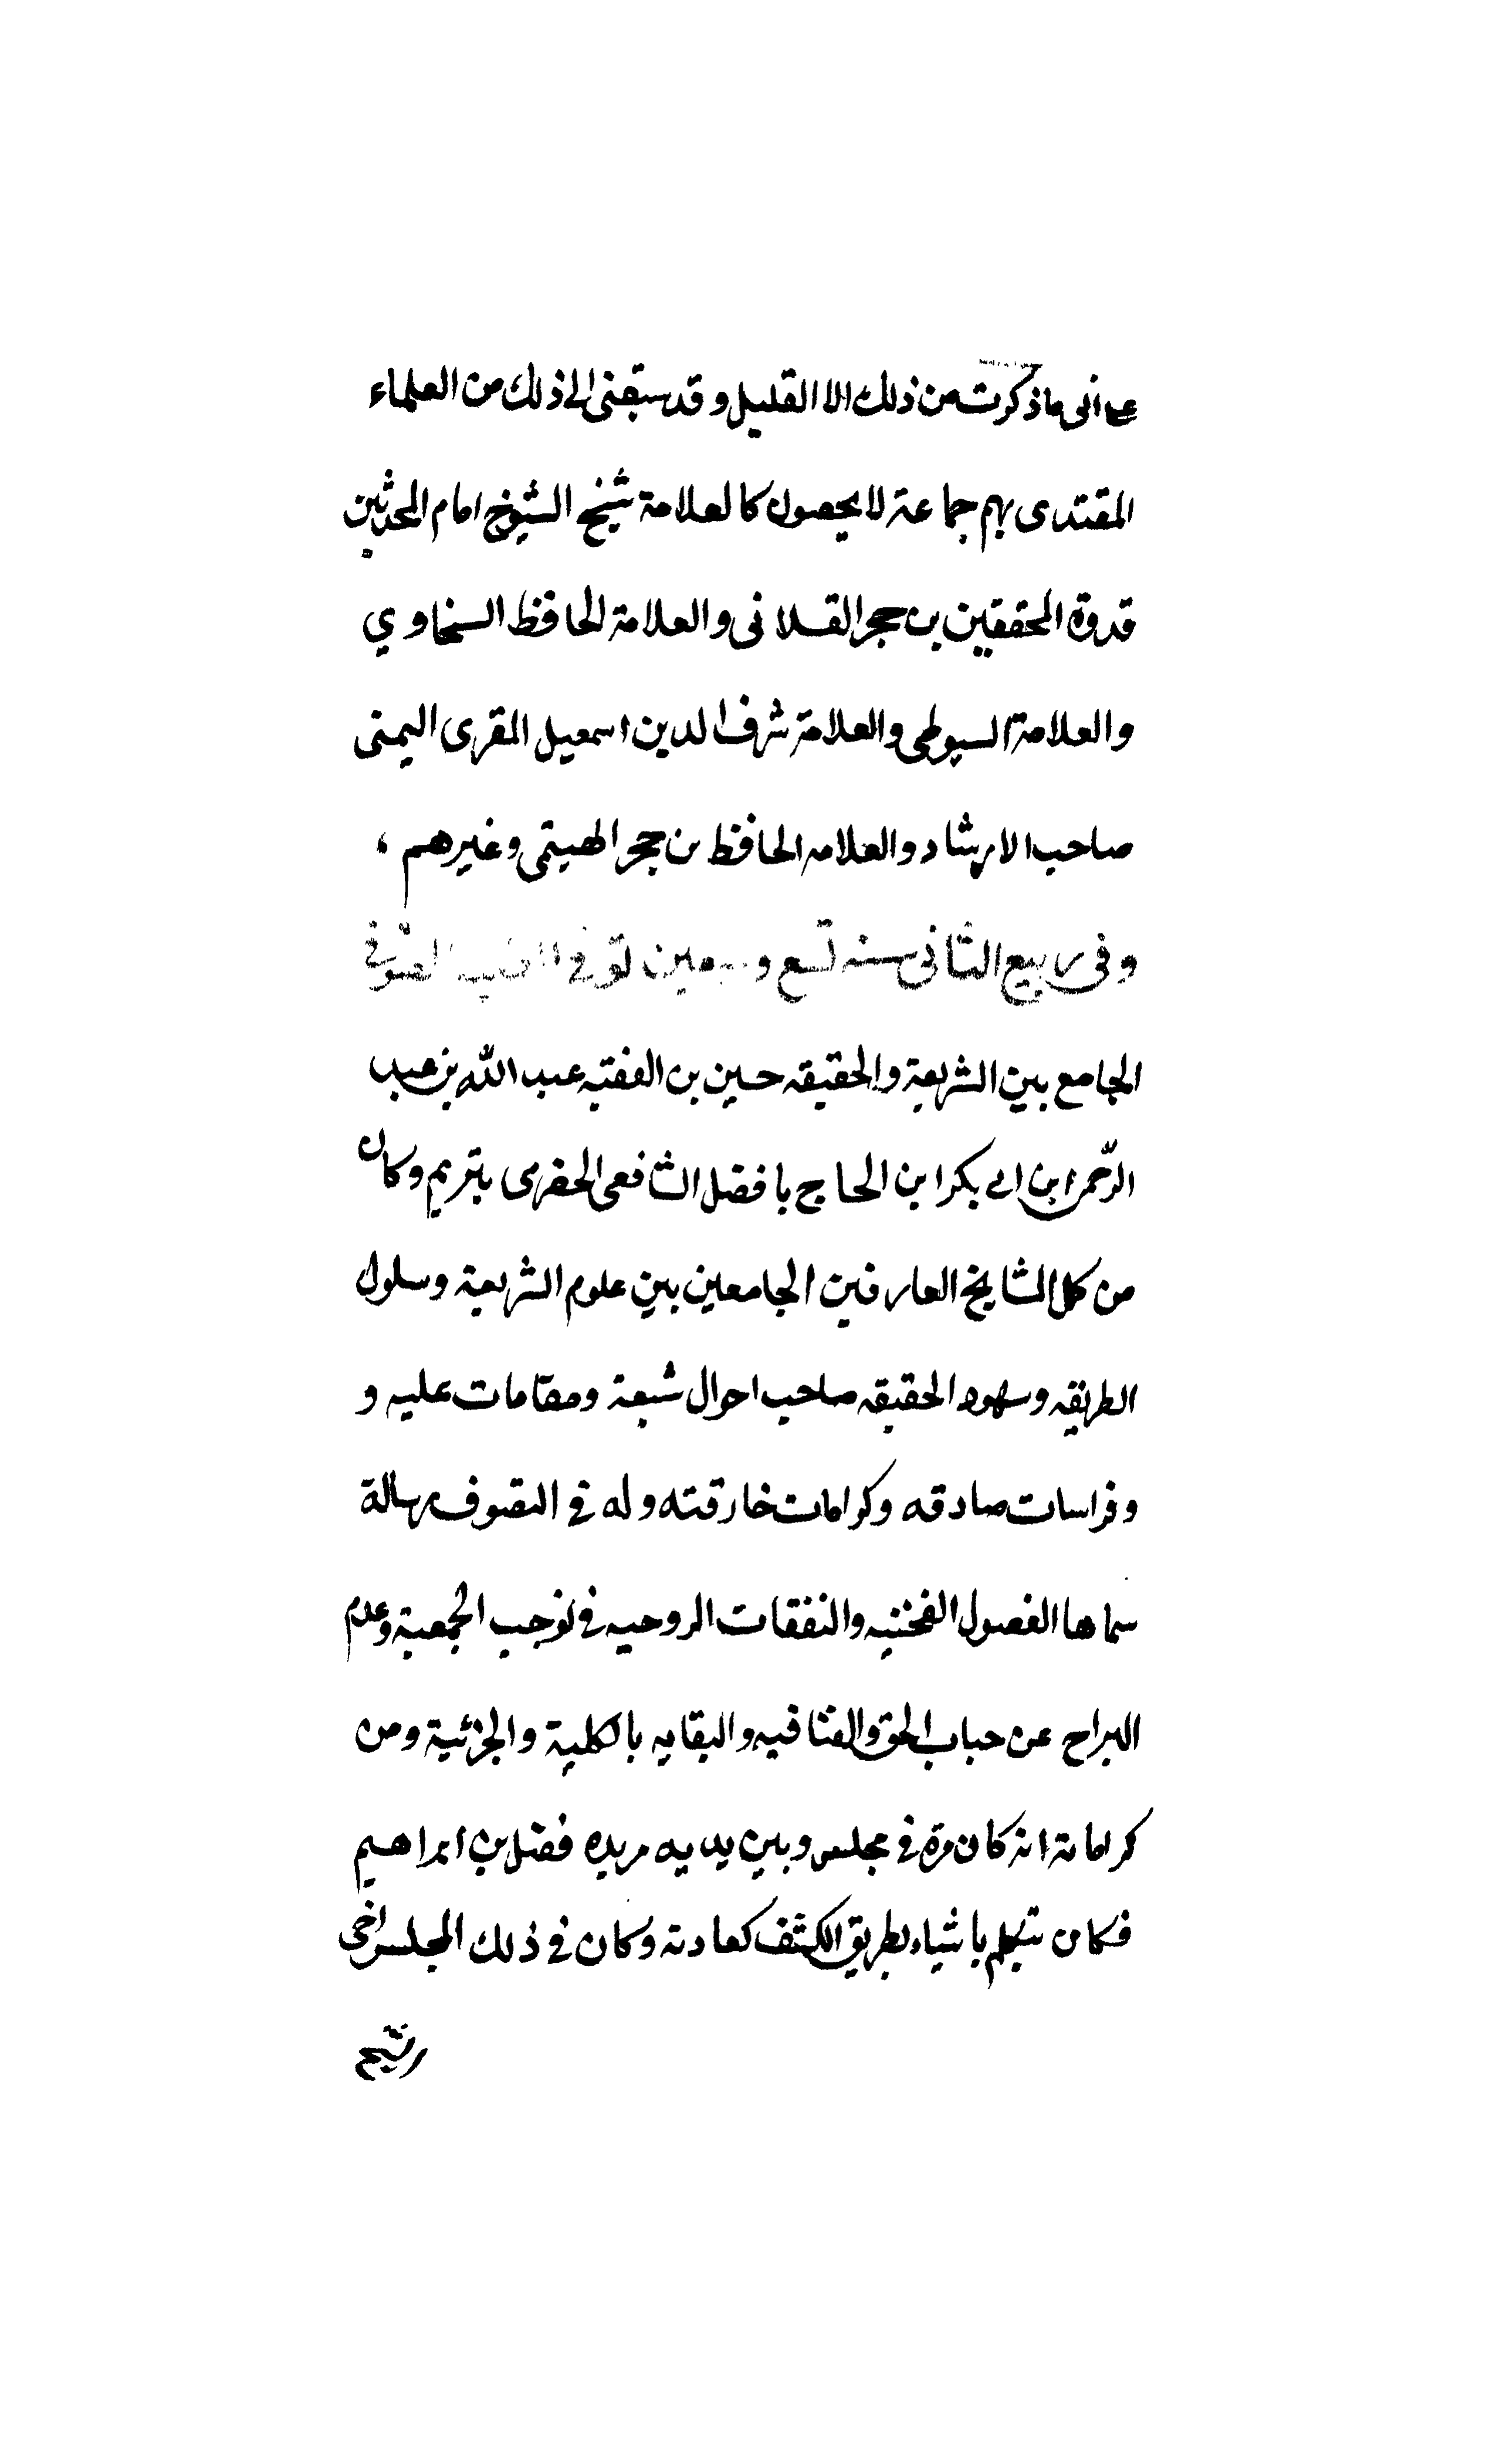 عما انى ماذكرت من ذلك الا القليل وقد سبقنى الى ذلك من العلماء
المقتدى بهم جماعة لا يحصون كالعلامة شيخ الشيوخ امام المحدثين
قدوة المحققين بن حجر القسلانى والعلامة الحافظ السخاوي
والعلامة السيوطى والعلامة شرف الدين اسمعيل المقرى اليمنى
صاحب الارشاد والعلامه الحافظ بن حجر الهيتمى وغيرهم ،
وفى ربيع الثانى سنه تسع وسبعين توفى الصوفي
الجامع بين الشريعة والحقيقه حسين بن الفقيه عبد الله بن عبد
الرّحمن ابن ابى بكر ابن الحاج بافضل الشافعى الحضرمى بتريم وكان
من كمل المشايخ العارفين الجامعين بين علوم الشريعة وسلوك
الطريقه وشهود الحقيقه صاحب احوال سنية ومقامات عليه و
وفراسات صادقه وكرامات خارقته وله في التصوف رسالة
سماها الفصول الفتحيه والنفثات الروحيه في توجب الجمعية وعدم
البراح عن حباب الحق والفنا فيه والبقا به بالكلية والجزئية ومن
كراماته انه كان مرة في مجلس وبين يديه مريده فضل بن ابراهيم
فكان يتكلم باشياء بطريق الكشف كعادته وكان في ذلك المجلس اخى